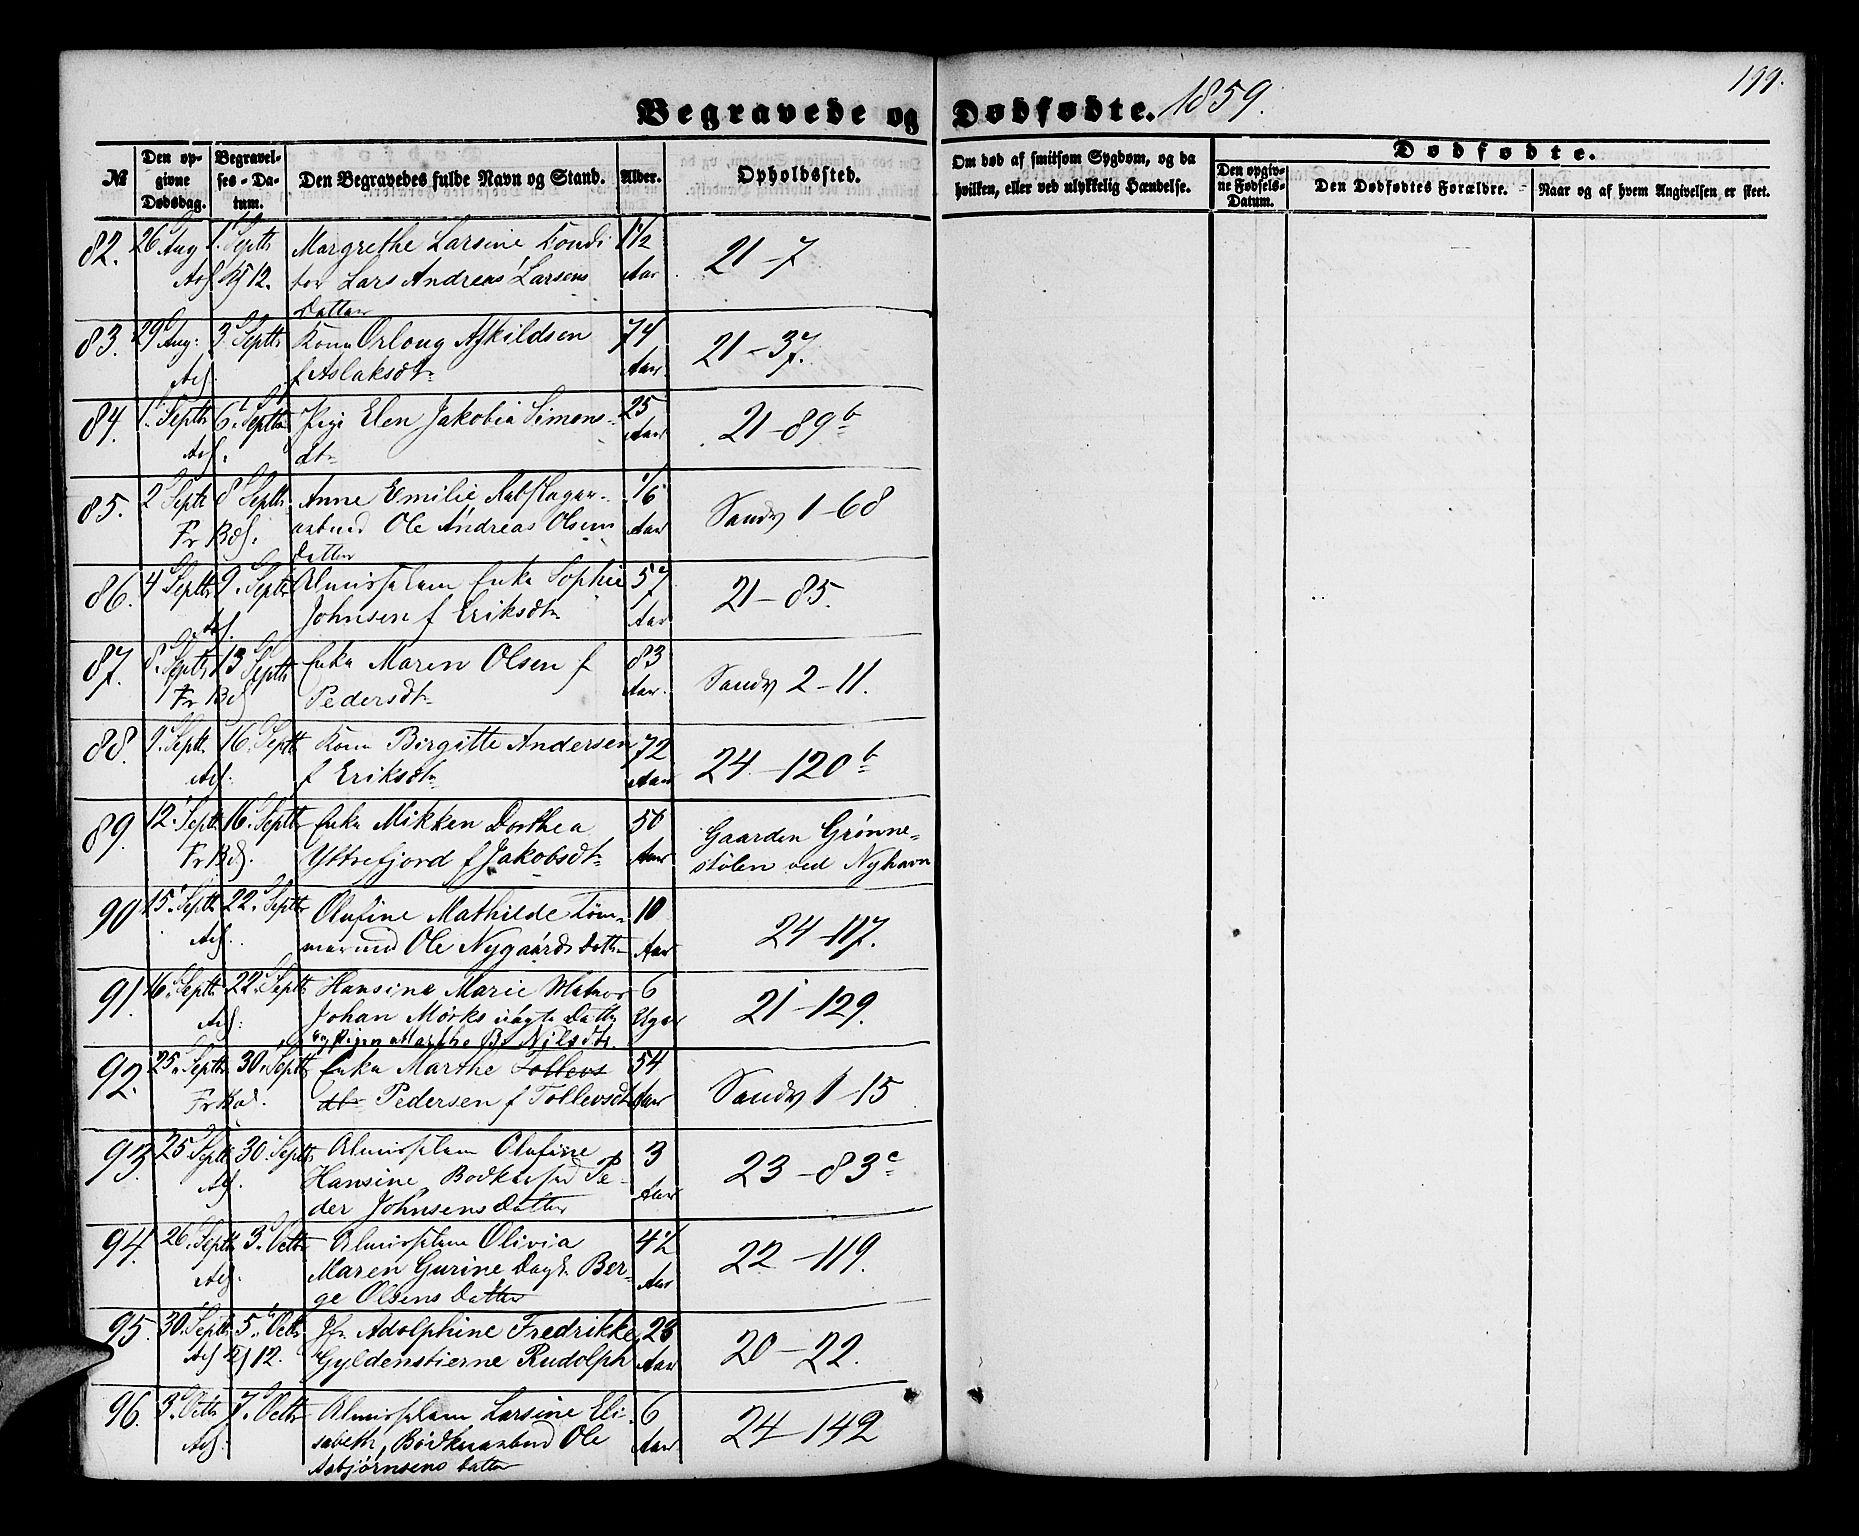 199.
Begravede og Dødfødte. 1859.
№
Den opgivne Dødsdag.
Begravelses-Datum.
Den Begravedes fulde Navn og Stand.
Alder.
Opholdssted.
Om død af smitsom Sygdom, og da hvilken, eller ved ulykkelig Hændelse.
Dødfødte.
Den opgivne Fødsels-Datum.
Den Dødfødtes Forældre.
Naar og af hvem Angivelsen er skeet.
82. 26 Aug 1. Septb Margrethe Larsine 1½ 21-7
12. Lars Andreas Larsens Aar
Datter
83. 29 Aug: 3. Septb Kone Orloug Askildsen 74 21-37.
f Aslaksdtr Aar
84. 1. Septb 6. Septb Pige Elen Jakobia Simons- 25 21-89b
dtr Aar
85. 2 Septb 8 Septb Anne Emilie 1/6 Sandv 1-68
Fr Ole Andreas Olsens Aar
Datter
86. 4 Septb 9. Septb Enke Sophie 57 21-85.
Johnsen f Eriksdtr Aar
87. 8. Septb 13 Septb Enke Maren Olsen f 83 Sandv 2-11.
Fr Pedersdtr Aar
88. 9. Septb. 16. Septb Kone Birgitte Andersen 72 24-120b
f Eriksdtr Aar
89. 12. Septb 16. Septb Enke Mikken Dorthea 50 Gaarden Grønne-
Fr Yttrefjord f Jakobsdtr Aar stølen ved Nyhavn
90 15. Septb 22. Septb Olufine Mathilde Tøm- 10 24-117.
mermd Ole Nygaards Datter Aar
91. 16. Septb 22. Septb Hansine Marie Matros 6 21-129.
Johan Mørks uægte Datter Uger
og Pigen Marthe Nilsdtr.
92. 25. Septb 30. Septb Enke Marthe Tollevs 54 Sandv 1-15
Fr dtr Pedersen f Tollevsdtr Aar
93. 25. Septb 30. Septb Olufine 3 23-83c
Hansine Pe- Aar
der Johnsens Datter
94. 26. Septb 3. Octb Olivia 4½ 22-119.
Maren Gurine Ber- Aar
ge Olsens Datter
95. 30. Septb 5. Octb Jfr. Adolphine Fredrikke 28 20-22.
12. Gyldenstierne Rudolph Aar
96. 3. Octb 7. Octb Larsine Eli- 6 24-142
sabeth, Ole Aar
Asbjørnsens Datter